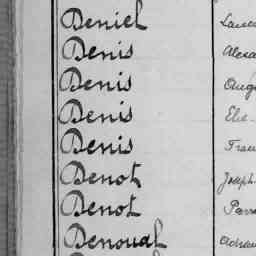 Deniel
Denis Alexa
Denis Aug
Denis
Denis Fran
Denot Joseph
Denot Pierre
Denoual Adrien